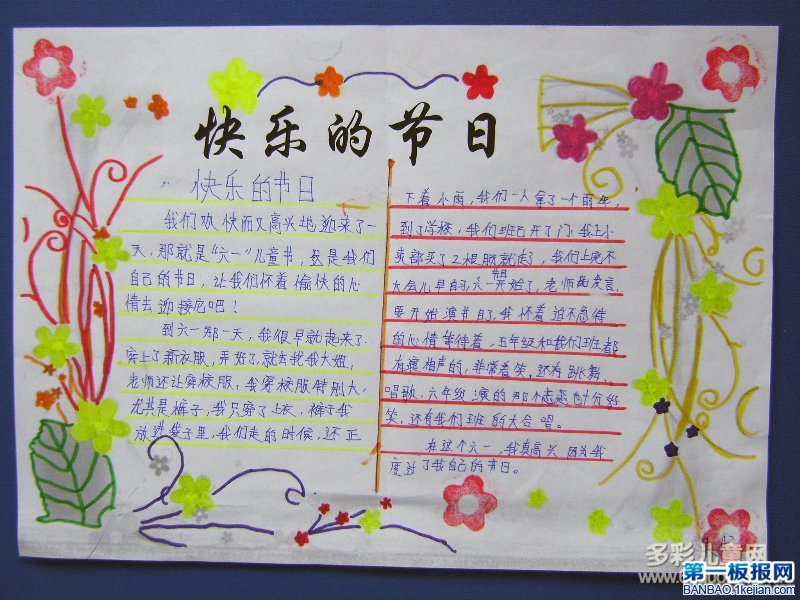 快乐的节日
快乐的节日
我们欢快而又高兴地迎来了一
天,那就是“六一”儿童节,这是我们
自己的节日,让我们怀着愉快的心
情去迎接它吧!
到六一那一天,我很早就起来了.
穿上了新衣服,弄好了就去找我大姐,
老师还让穿校服,我穿校服特别大,
尤其是裤子,我只穿了上衣,裤子我
放进袋子里,我们走的时候,还正
下着小雨,我们一人拿了一个雨伞,
到了学校,我们班已开了门,我上小
卖部买了2根肠就走了,我们上完不
大会儿早自习,六一节目开始了,老师发言,
要开始演节目了,我怀着迫不急待
的心情等待着,五年级和我们班都
有演相声的,非常着笑,还有跳舞,
唱歌,六年级演的那个恋恋也十分好
笑,还有我们班的大合唱。
在这个六一,我真高兴,因为我
度过了我自己的节日。
多彩儿童网
第一板报网
BANBAO.1kejian.com